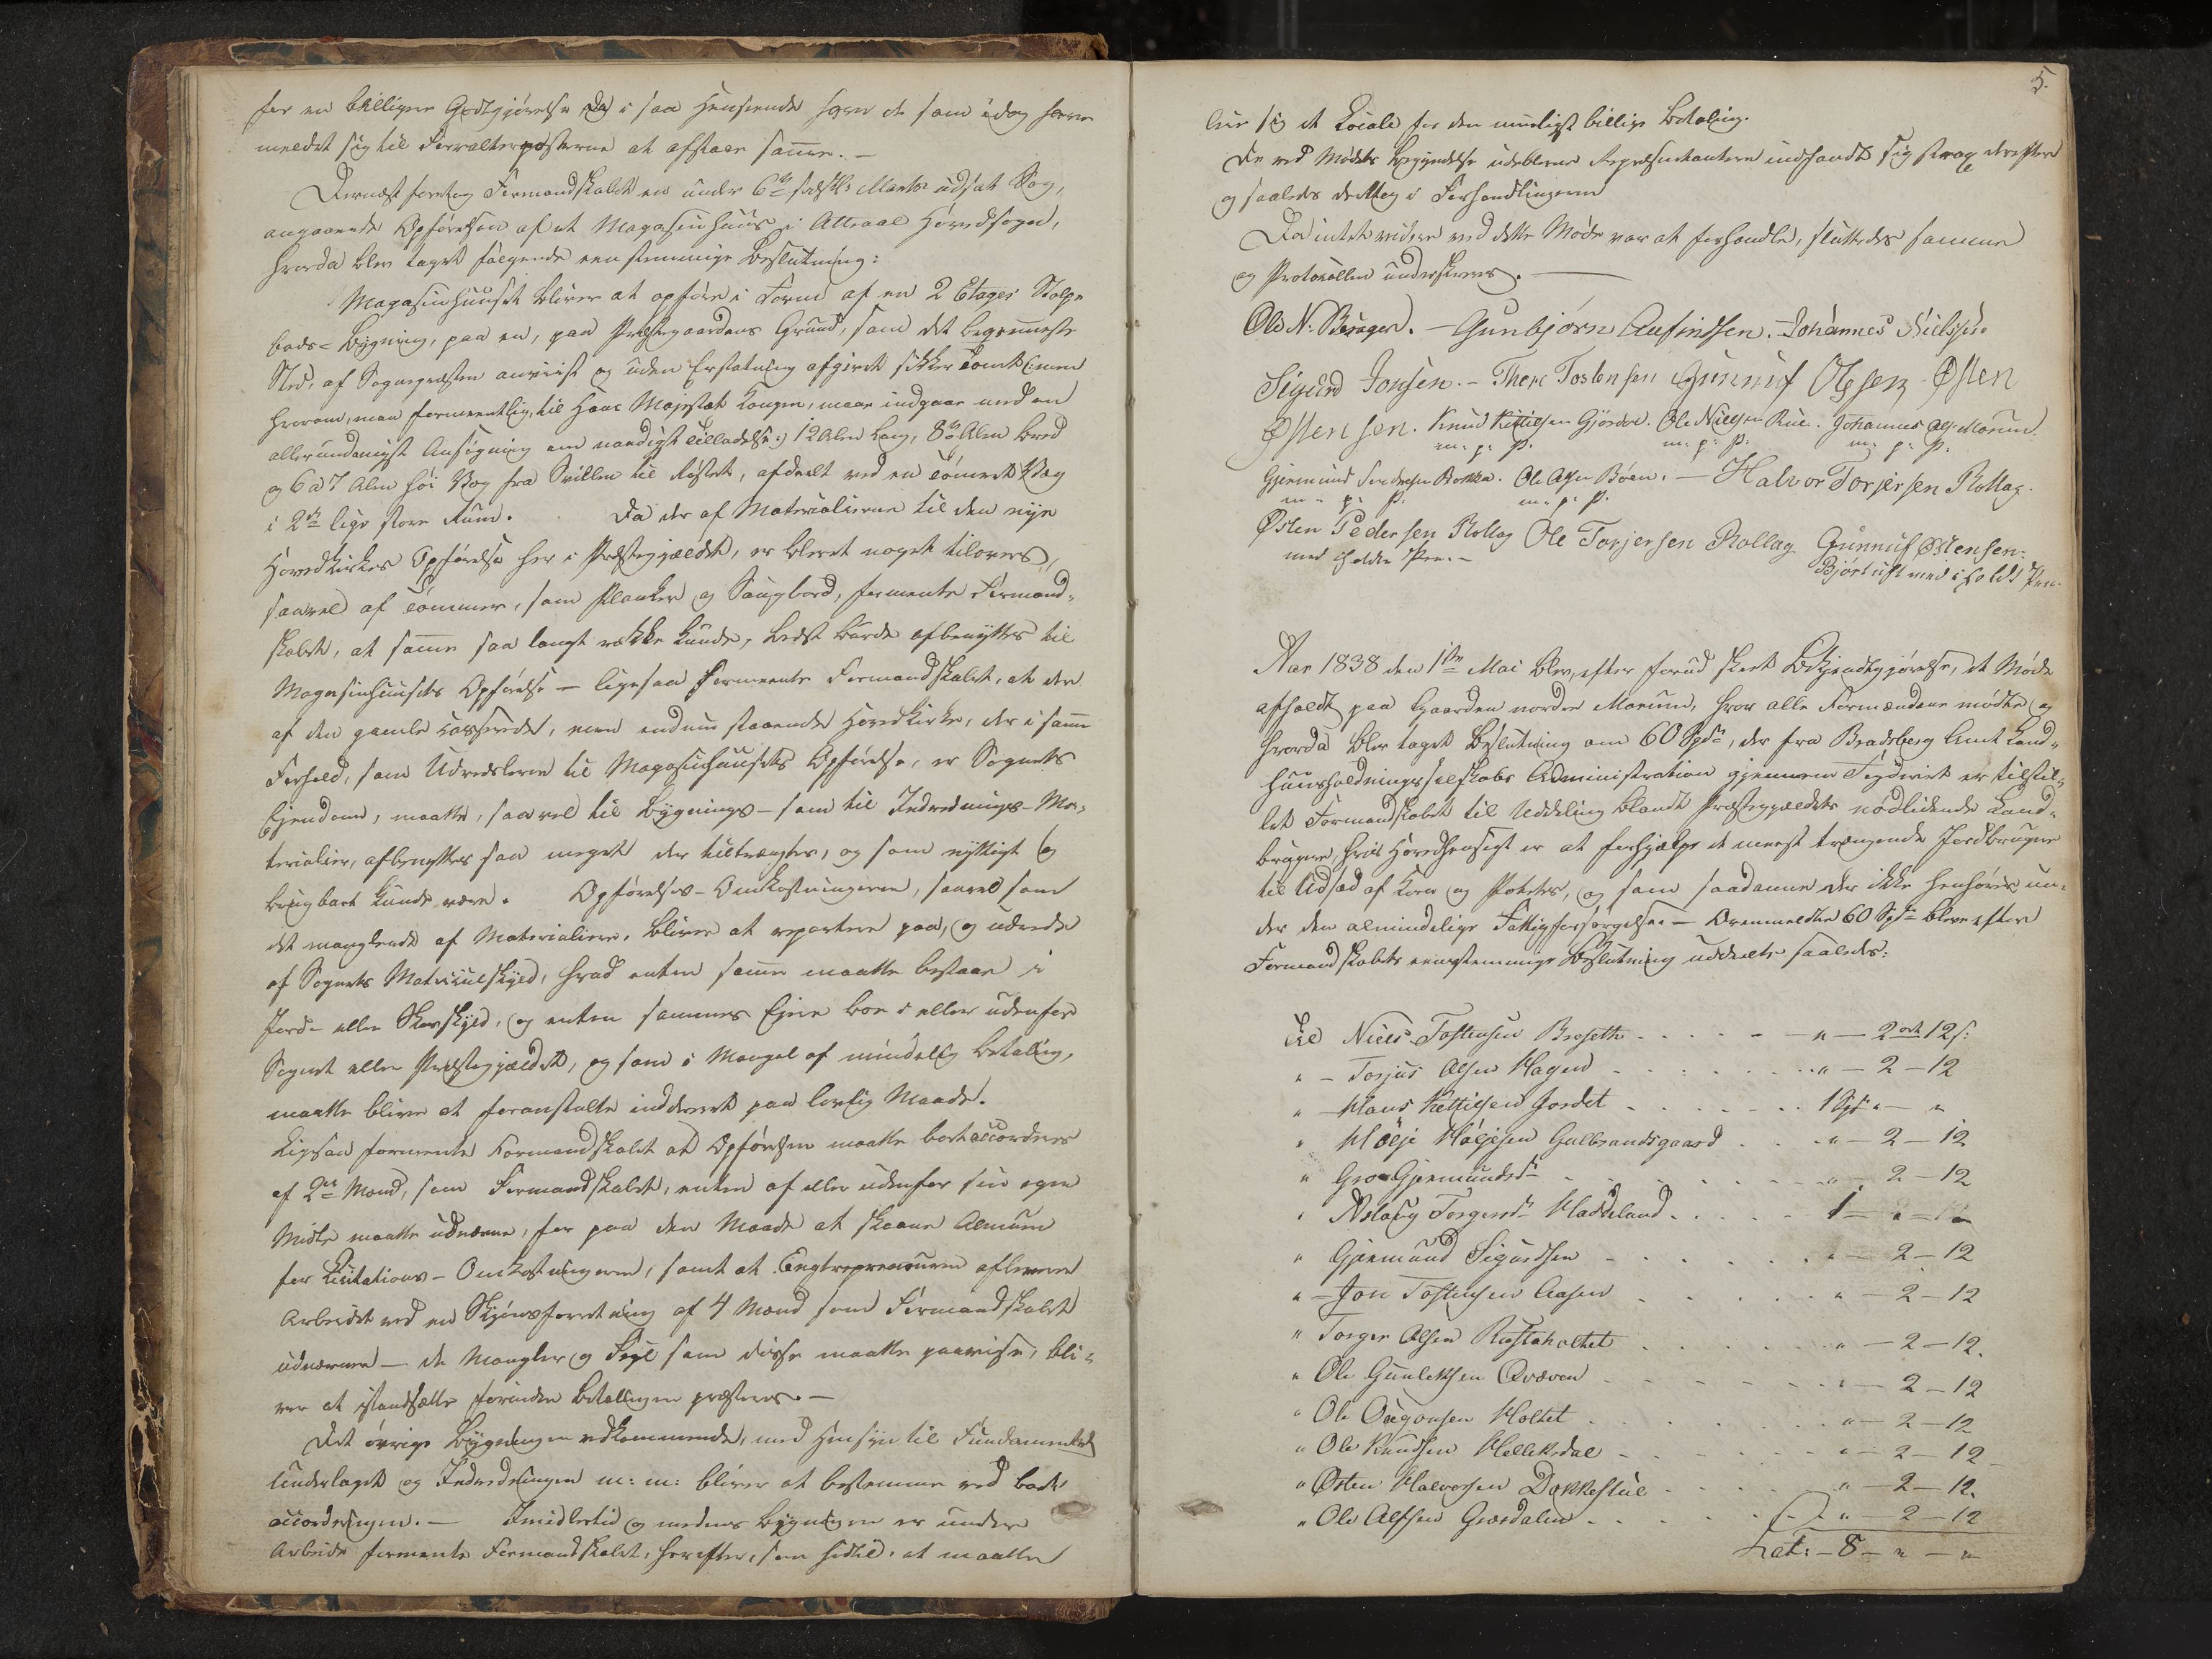 for en billigere Godtgjørelse da i saa Henseende har de som idag have
meldet sig til Forvalterposterne at afstaae samme. —
Dernæst foretog Formandskabet en under 6te sidstl: Marts udsat Sag,
angaaende Opførelsen af et Magasinhuus i Attraae Hovedsogn,
hvorda blev taget følgende eenstemmige Beslutning:
Magasinhuuset bliver at opføre i Form af en 2 Etages Stolpe
bods-Bygning, paa en, paa Præstegaardens Grund, som det beqvemmeste
Sted, af Sognepræsten anviist og uden Erstatning afgivet sikker Tomt (: men
hvorom, man formeentlig, til Hans Majestæt Kongen, maae indgaae med en
allerunderdanigst Ansøgning om naadigst Tilladelse :) 12 Alen lang, 8te Alen bred
og 6 a 7 Alen høi Væg fra Svillen til Røstet, afdeelt ved en tømret Væg
i 2de lige store Rum. Da der af Materialierne til den nye
Hovedkirkes Opførelse her i Præstegjældet, er blevet noget tilovers,
saavel af Tømmer, som Planker og Saugbord, formente Formand-
skabet, at samme saa langt række kunde, bedst burde afbenyttes til
Magasinhuusets Opførelse — ligesaa formeente Formandskabet, at der
af den gamle casserede, men endnu staaende Hovedkirke, der i samme
Forhold, som Udrederne til Magasinhuusets Opførelse, er Sognets
Ejendom, maatte, saavel til Bygnings- som til Indrednings-Ma-
terialier, afbenyttes saa meget der tiltrængtes, og som nyttigt og
brugbart kunde være. Opførelses-Omkostningerne, saavel som
det manglende af Materialier, bliver at repartere paa, og udrede
af Sognets Matriculskyld, hvad enten samme maatte bestaae i
Jord- eller Skovskyld, og enten sammes Ejere boe i eller udenfor
Sognet eller Præstegjældet, og som i Mangel af mindelig Betaling,
maatte blive at foranstalte inddrevet paa lovlig Maade.
Ligesaa formente Formandskabet at Opførelsen maatte bortaccorderes
af 2de Mænd, som Formandskabet, enten af eller udenfor sin egen
Midte maatte udnævne, for paa den Maade at skaane Almuen
for Licitations-Omkostningerne, samt at Entrepreneuren afleverer
Arbeidet ved en Skjønsforretning af 4 Mænd som Formandskabet
udnævner — de Mangler og Feil som disse maatte paavise, bli-
ver at istandsætte forinden Betalingen præsteres. —
Det øvrige Bygningen vedkommende, med Hensyn til Fundamentet
Underlaget og Indredningen m: m: bliver at bestemme ved bort-
accorderingen. — Imidlertid og medens Bygningen er under
Arbeide formente Formandskabet, herefter, som hidtil, at maatte
5.
leie sig et Locale for den mueligst billige Betaling.
De ved Mødets Begyndelse udeblevne Repræsentantere indfandt sig strax derefter
og saaledes deeltog i Forhandlingerne
Da intet videre ved dette Møde var at forhandle, sluttedes samme
og Protokollen underskreves. —
Ole N: Beragen. — Gunbjørn Aufindsen. Johannes Nielsen
Sigurd Jonsen. — Thore Tostensen Gunnuf Olssen Østen
Østensen. Knud Kittilsen Gjørdal. Ole Nielsen Rue. Johannes Ols: Moruum
m. p. P. m: p: P: m: p: P.
Gjermund Sondresen Bakka. Ole Olsen Bøen. — Halvor Torjersen Rollag.
m: p: P. m: p: P.
Østen Pedersen Rollag Ole Torjersen Rollag Gunnuf Østensen:
med iholden Pen. — Bjørtuft med iholdt Pen.
Aar 1838 den 1ste Mai blev, efter forud skeet Bekjendtgjørelse, et Møde
afholdt paa Gaarden nordre Moruum, hvor alle Formændene mødte og
hvorda blev taget Beslutning om 60 Spd, der fra Bradsberg Amt Land-
huusholdningsselskabs Administration gjennem Fogderiet er tilstil-
let Formandskabet til Uddeling blandt Præstegjældets nødlidende Land-
brugere, hvis Hovedhensigt er at forhjælpe de meest trængende Jordbrugere
til Udsæd af Korn og Potetes, og som saadanne der ikke henhører un-
der den almindelige Fattigforsørgelse — Ovenmeldte 60 Spd bleve efter
Formandskabets eenstemmige Beslutning uddeelte saaledes:
Til Niels Tostensen Broseth . . . . " — 2 ort 12 s:
" — Torjus Olsen Hagen . . . . . " — 2 — 12
" — Hans Kittilsen Jordet . . . . . 1 Spd " — "
" Hølje Høljesen Gulbrandsgaard . . . " — 2 — 12
" Gro Gjermundsd . . . . . . " — 2 — 12
" Aslaug Torgersd Haddeland . . . . 1 — " — "
" Gjermund Sigurdsen . . . . . . " — 2 — 12
" — Jon Tostensen Aasen . . . . . " — 2 — 12
" Torger Olsen Rustaholtet . . . . . " — 2 — 12.
" Ole Gunleksen Qvæven . . . . . . " — 2 — 12
" Ole Oregonsen Holtet . . . . . . " — 2 — 12
" Ole Knudsen Helleksdal . . . . . " — 2 — 12
" Østen Halvorsen Dokkestul . . . . " — 2 — 12.
" Ole Alfsen Grovdalen . . . . . . " — 2 — 12
Lat: — 8 — " — "